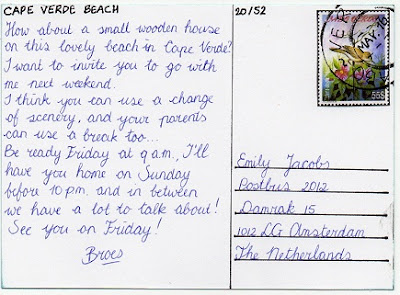 CAPE VERDE BEACH
How about a small wooden house
on this lovely beach in Cape Verde?
I want to invite you to go with
me next weekend.
I think you can use a change
of scenery, and your parents
can use a break too...
Be ready Friday at 9 a.m., I'll
have you home on Sunday
before 10 p.m. and in between
we have a lot to talk about!
See you on Friday!
Broes
20/52
Emily Jacobs
Postbus 2012
Damrak 15
1012 LG Amsterdam
The Netherlands